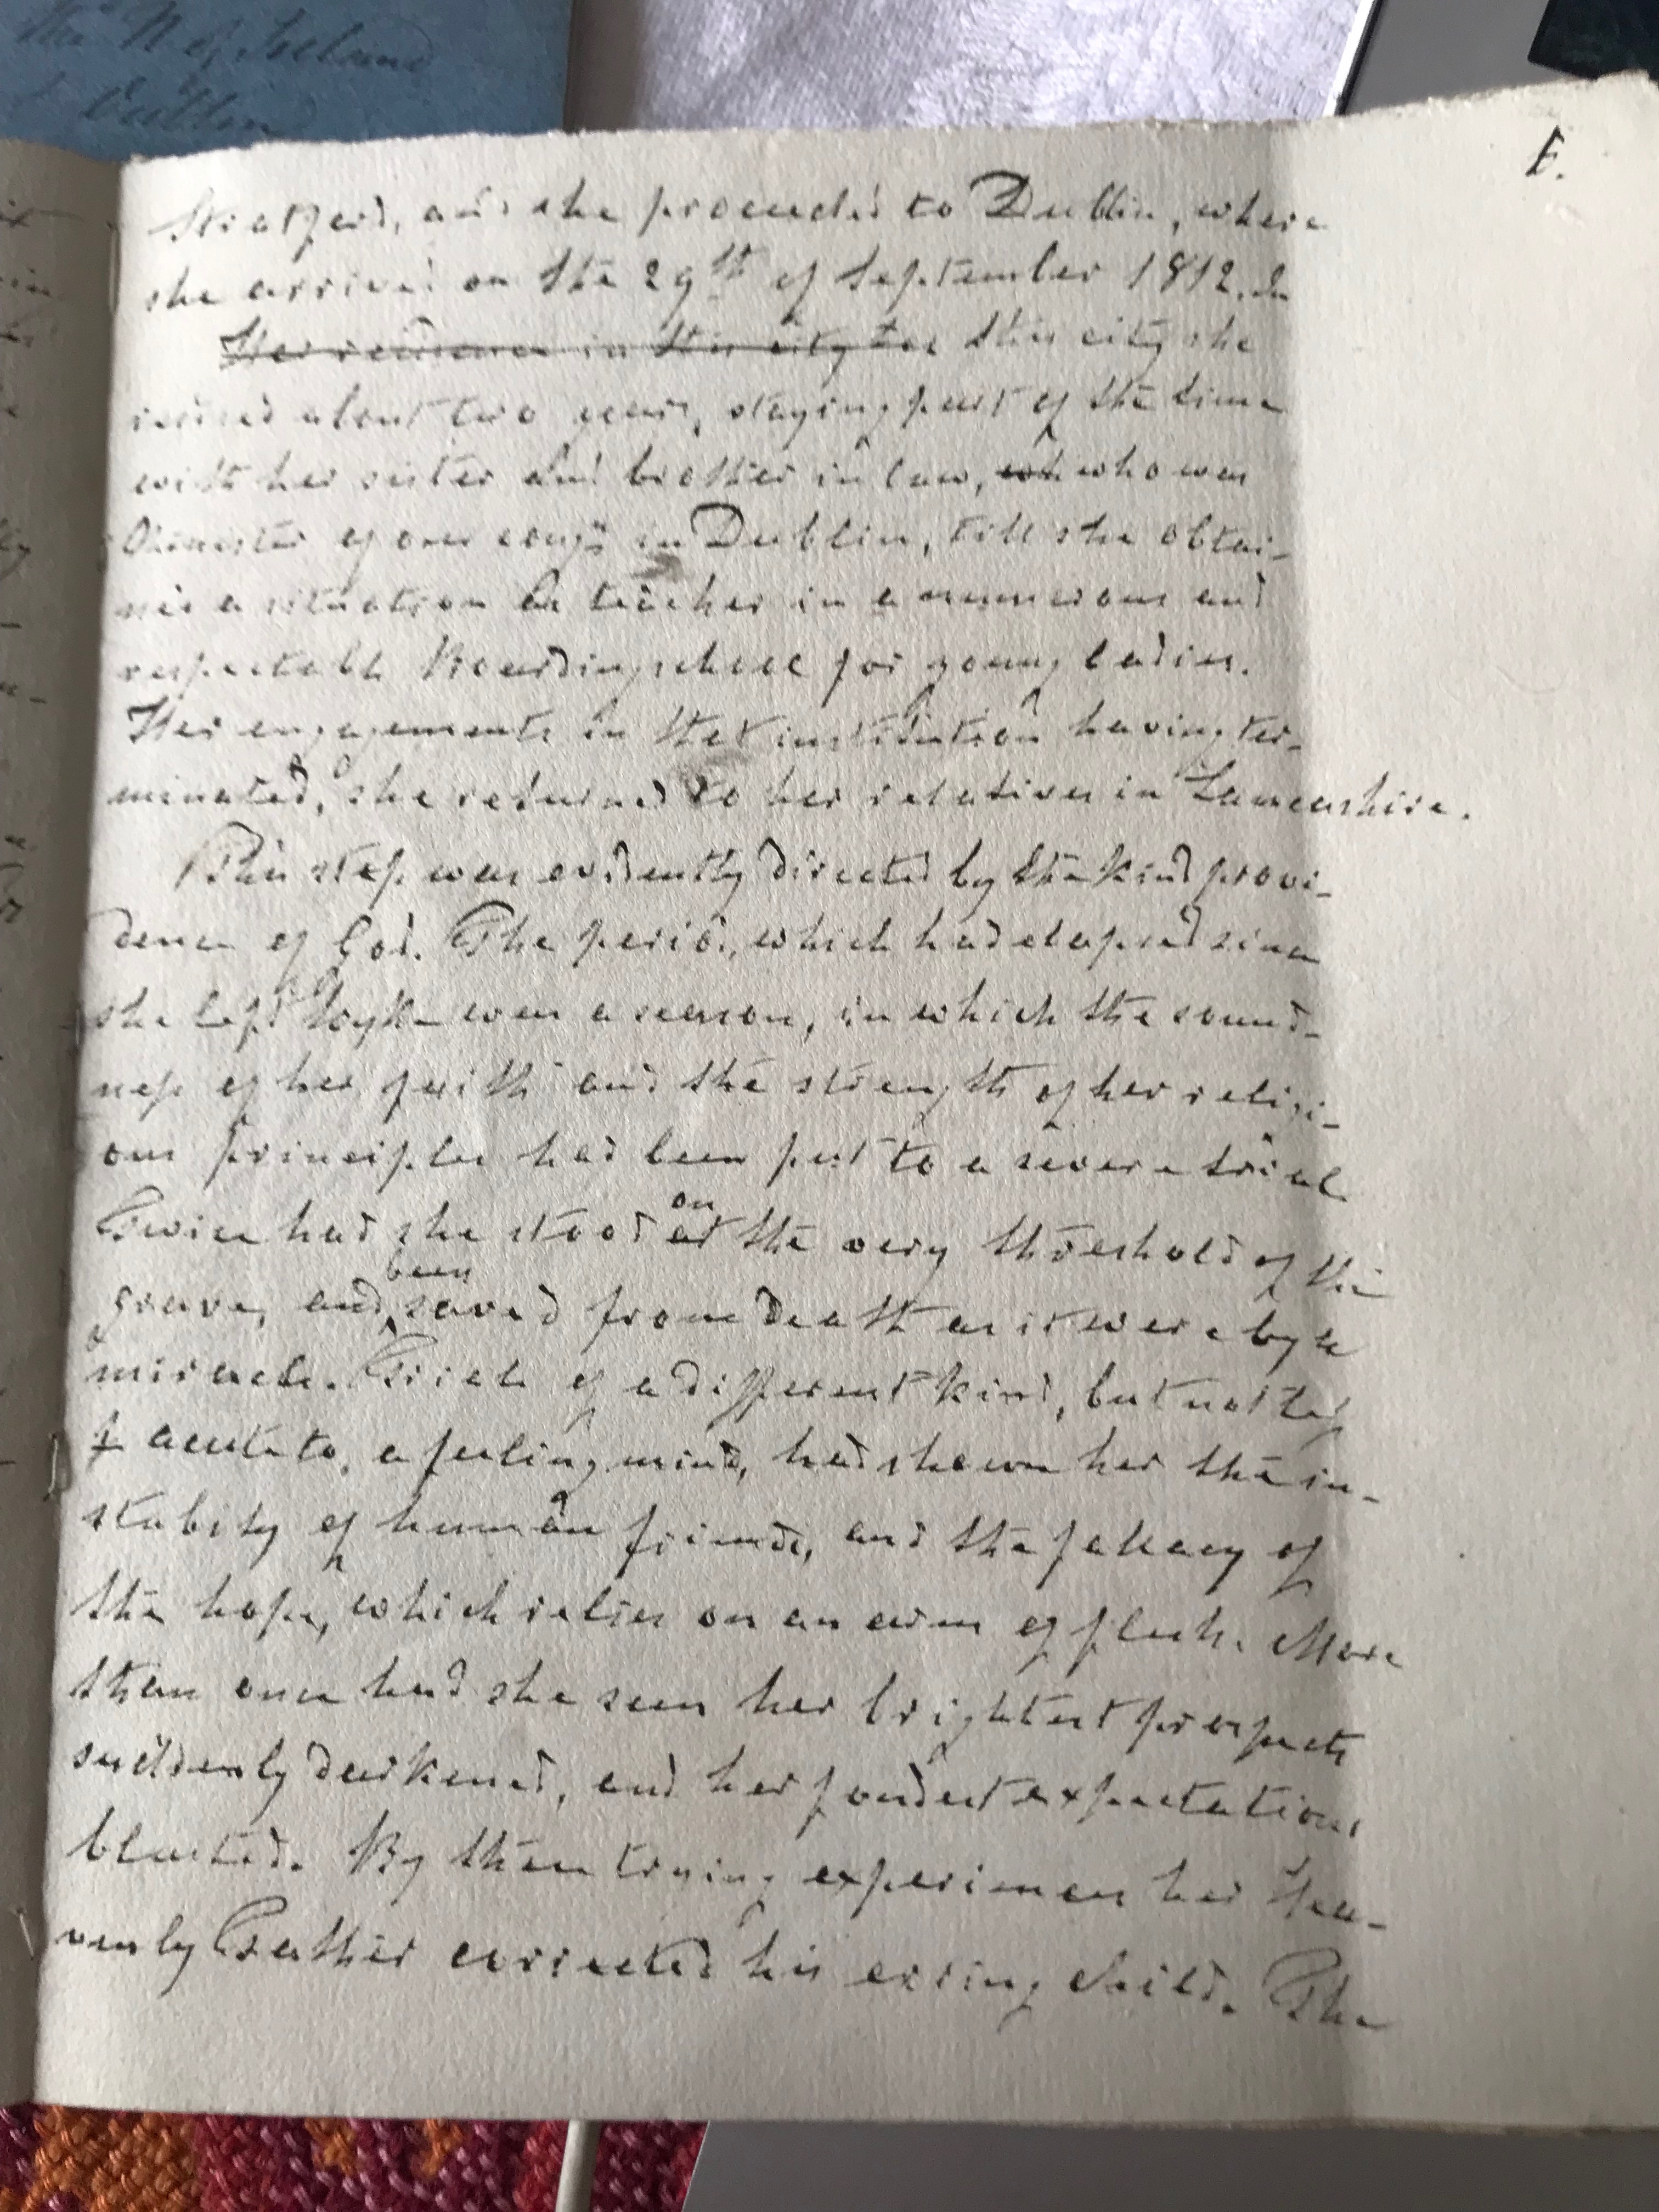 the N. of Ireland
Dublin
E.
Stratford, and she proceeded to Dublin, where
she arrived on the 29th of September 1812. In
Her residence in this city too this city she
resided about two years, staying part of the time
with her sister and brother in law, wh who was
Minister of our cong: in Dublin, till she obtai-
ned a situation as teacher in a numerous and
respectable Boardingschool for young ladies.
Her engagements in that institution having ter-
minated, she returned to her relatives in Lancashire.
This step was evidently directed by the kind provi-
dence of God. The period, which had elapsed since
she left Wyke was a season, in which the sound-
ness of her faith and the strength of her religi-
ous principles had been put to a severe trial.
Twice had she stood at on the very threshold of the
grave, and been saved from death as it were by a
miracle. Trials of a different kind, but not less
acute to a feeling mind, had shewn her the in-
stabity of human friends, and the fallacy of
the hope, which relies on an arm of flesh. More
than once had she seen her brightest prospects
suddenly darkened, and her fondest expectations
blasted. By these trying experiences her Hea-
venly Father corrected his erring child. The